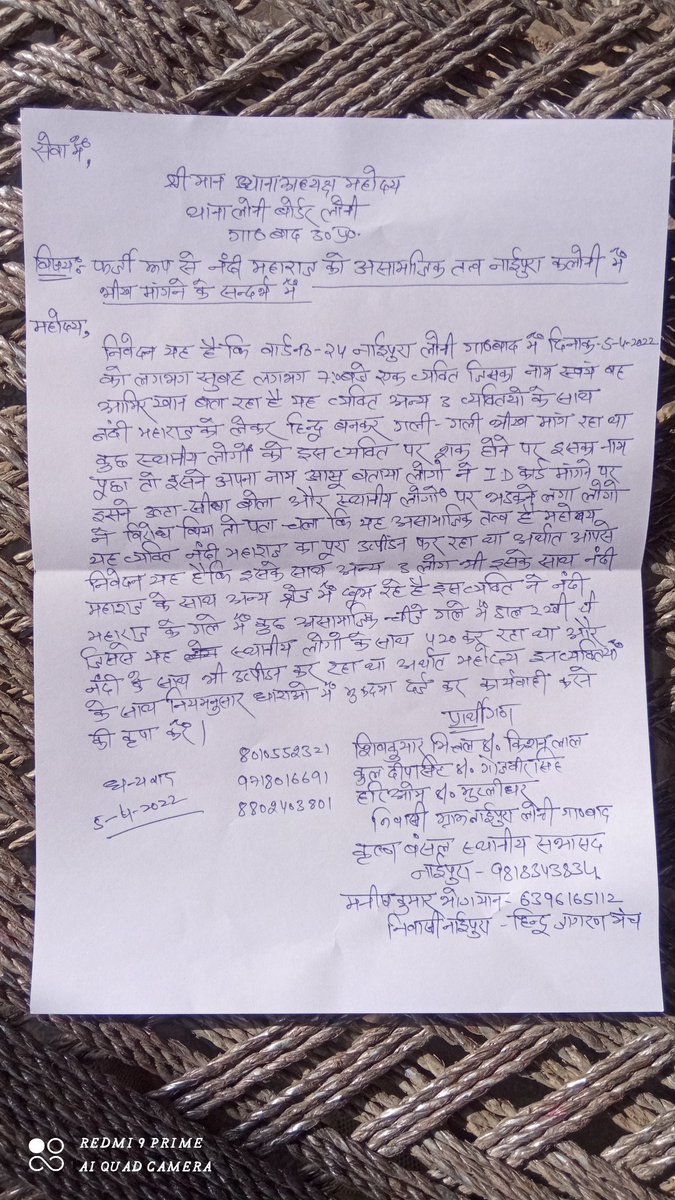 सेवा में,
श्री मान थानाध्यक्ष महोदय
थाना लोनी बोर्डर लोनी
गा०बाद उ०प्र०
विषय: फर्जी रूप से नंदी महाराज को असामाजिक तत्व नाईपुरा कलोनी में
भीख मांगने के सन्दर्भ में
महोदय,
निवेदन यह है कि वार्ड-न०-24 नाईपुरा लोनी गा०बाद में दिनाक-5-4-2022
को लगभग सुबह लगभग 7:बजे एक व्यक्ति जिसका नाम स्वयं वह
आमिर खान बता रहा है यह व्यक्ति अन्य 3 व्यक्तियों के साथ
नंदी महाराज को लेकर हिन्दू बनकर गली-गली भीख मांग रहा था
कुछ स्थानीय लोगों को इस व्यक्ति पर शक होने पर इसका नाम
पूछा तो इसने अपना नाम आसू बताया लोगो ने ID कार्ड मांगने पर
इसने उल्टा-सीधा बोला और स्थानीय लोगों पर भडकने लगा लोगो
ने विरोध किया तो पता चला कि यह असामाजिक तत्व है महोदय
यह व्यक्ति नंदी महाराज का पूरा उत्पीडन कर रहा था अर्थात आपसे
निवेदन यह है कि इसके साथ अन्य 3 लोग भी इसके साथ नंदी
महाराज के साथ अन्य क्षेत्र में घूम रहे है इस व्यक्ति ने नंदी
महाराज के गले में कुछ असामाजिक चीजे गले में डाल रखी थी
जिससे यह स्थानीय लोगो के साथ 420 कर रहा था और
नंदी के साथ भी उत्पीडन कर रहा था अर्थात महोदय इन व्यक्तियों
के साथ नियमनुसार धाराओं में मुकदमा दर्ज कर कार्यवाही करने
की कृपा करें।
प्रार्थीगण
8010552321 शिवकुमार मित्तल s/o किशन लाल
धन्यवाद 9718016691 कुलदीप सिंह s/o
5-4-2022 8802403801 हरिओम s/o मुरलीधर
निवासी ग्राम नाईपुरा लोनी गा०बाद
बंसल स्थानीय सभासद
नाईपुरा - 9818343834
मनीष कुमार - 6396165112
निवासी नाईपुरा - हिन्दू जागरण मंच
REDMI 9 PRIME
AI QUAD CAMERA